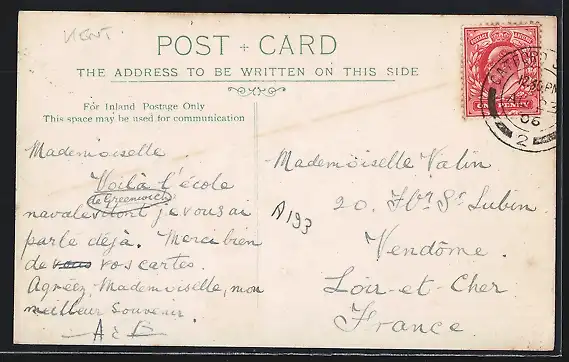 KENT
POST + CARD
THE ADDRESS TO BE WRITTEN ON THIS SIDE
For Inland Postage Only
This space may be used for communication
POSTAGE REVENUE
ONE PENNY
CATFORD
12.30 PM
23
06
2
Mademoiselle
Voilà l'école
de Greenwich
navale dont je vous ai
parlé déjà. Merci bien
de vous vos cartes.
Agréez Mademoiselle, mon
meilleur Souvenir.
A193
Mademoiselle Valin
20. Fbr St Lubin
Vendôme.
Loir-et-Cher
France